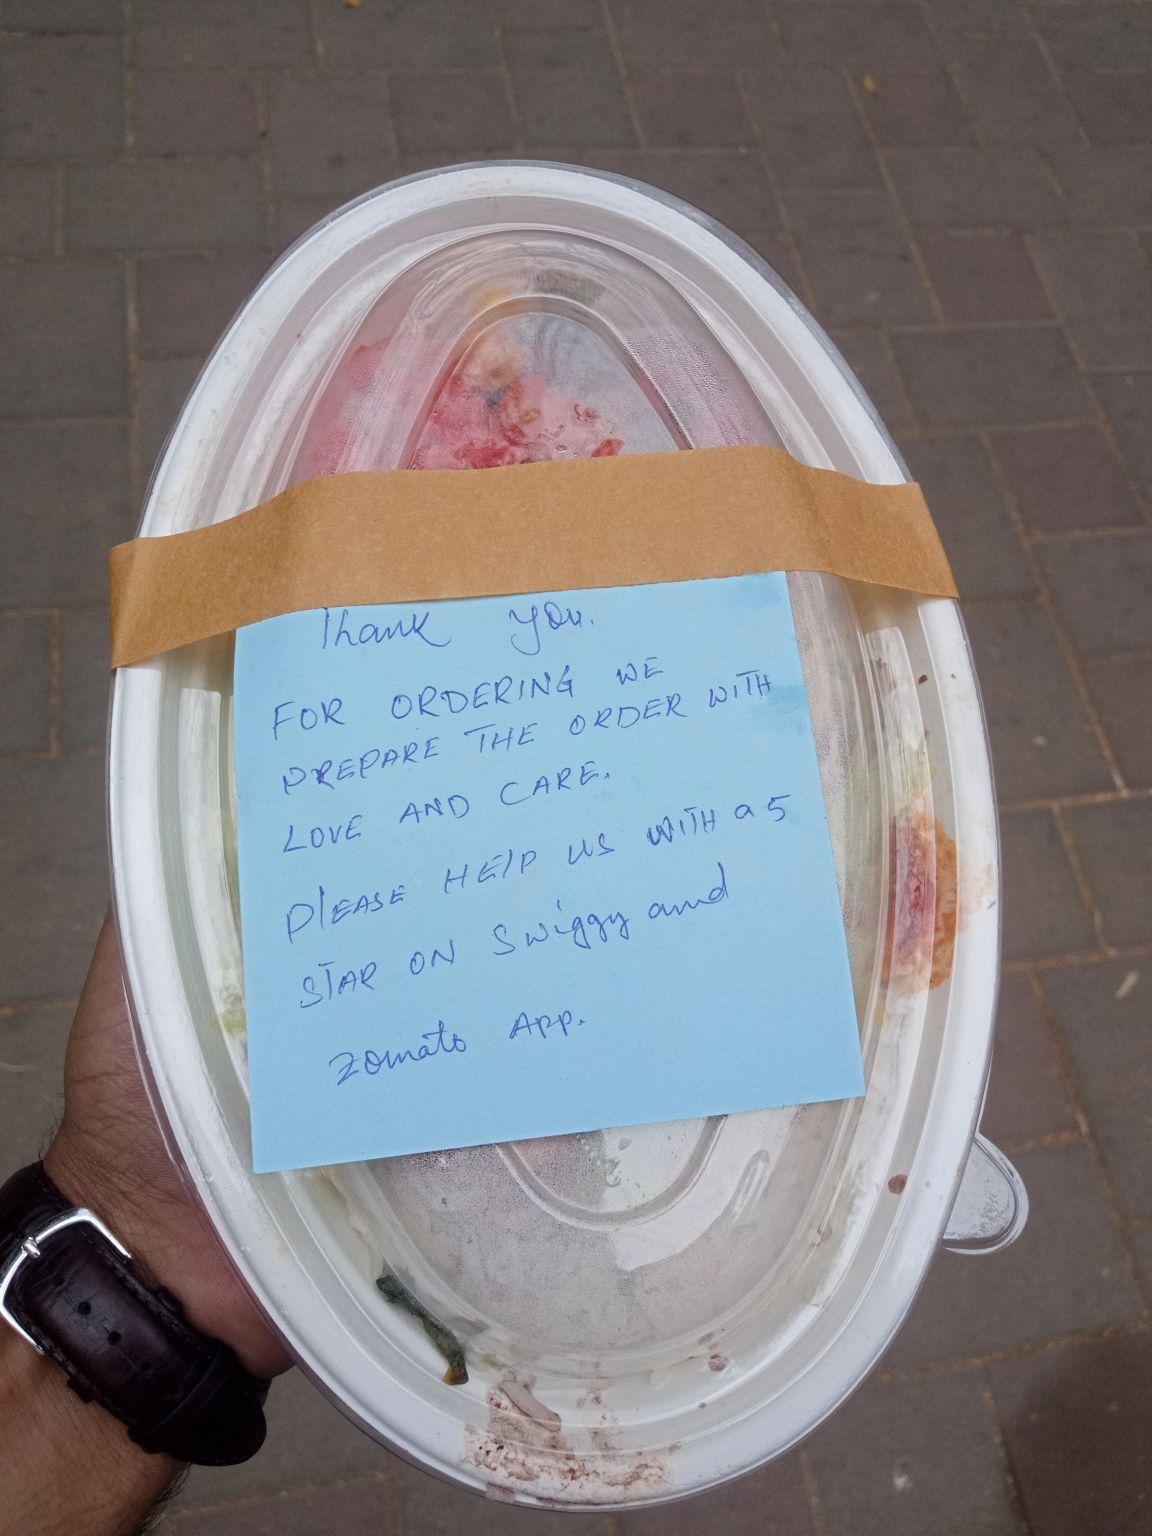 Thank you.
FOR ORDERING WE
PREPARE THE ORDER WITH
LOVE AND CARE.
PLEASE HELP US WITH a 5
STAR ON Swiggy and
Zomato APP.